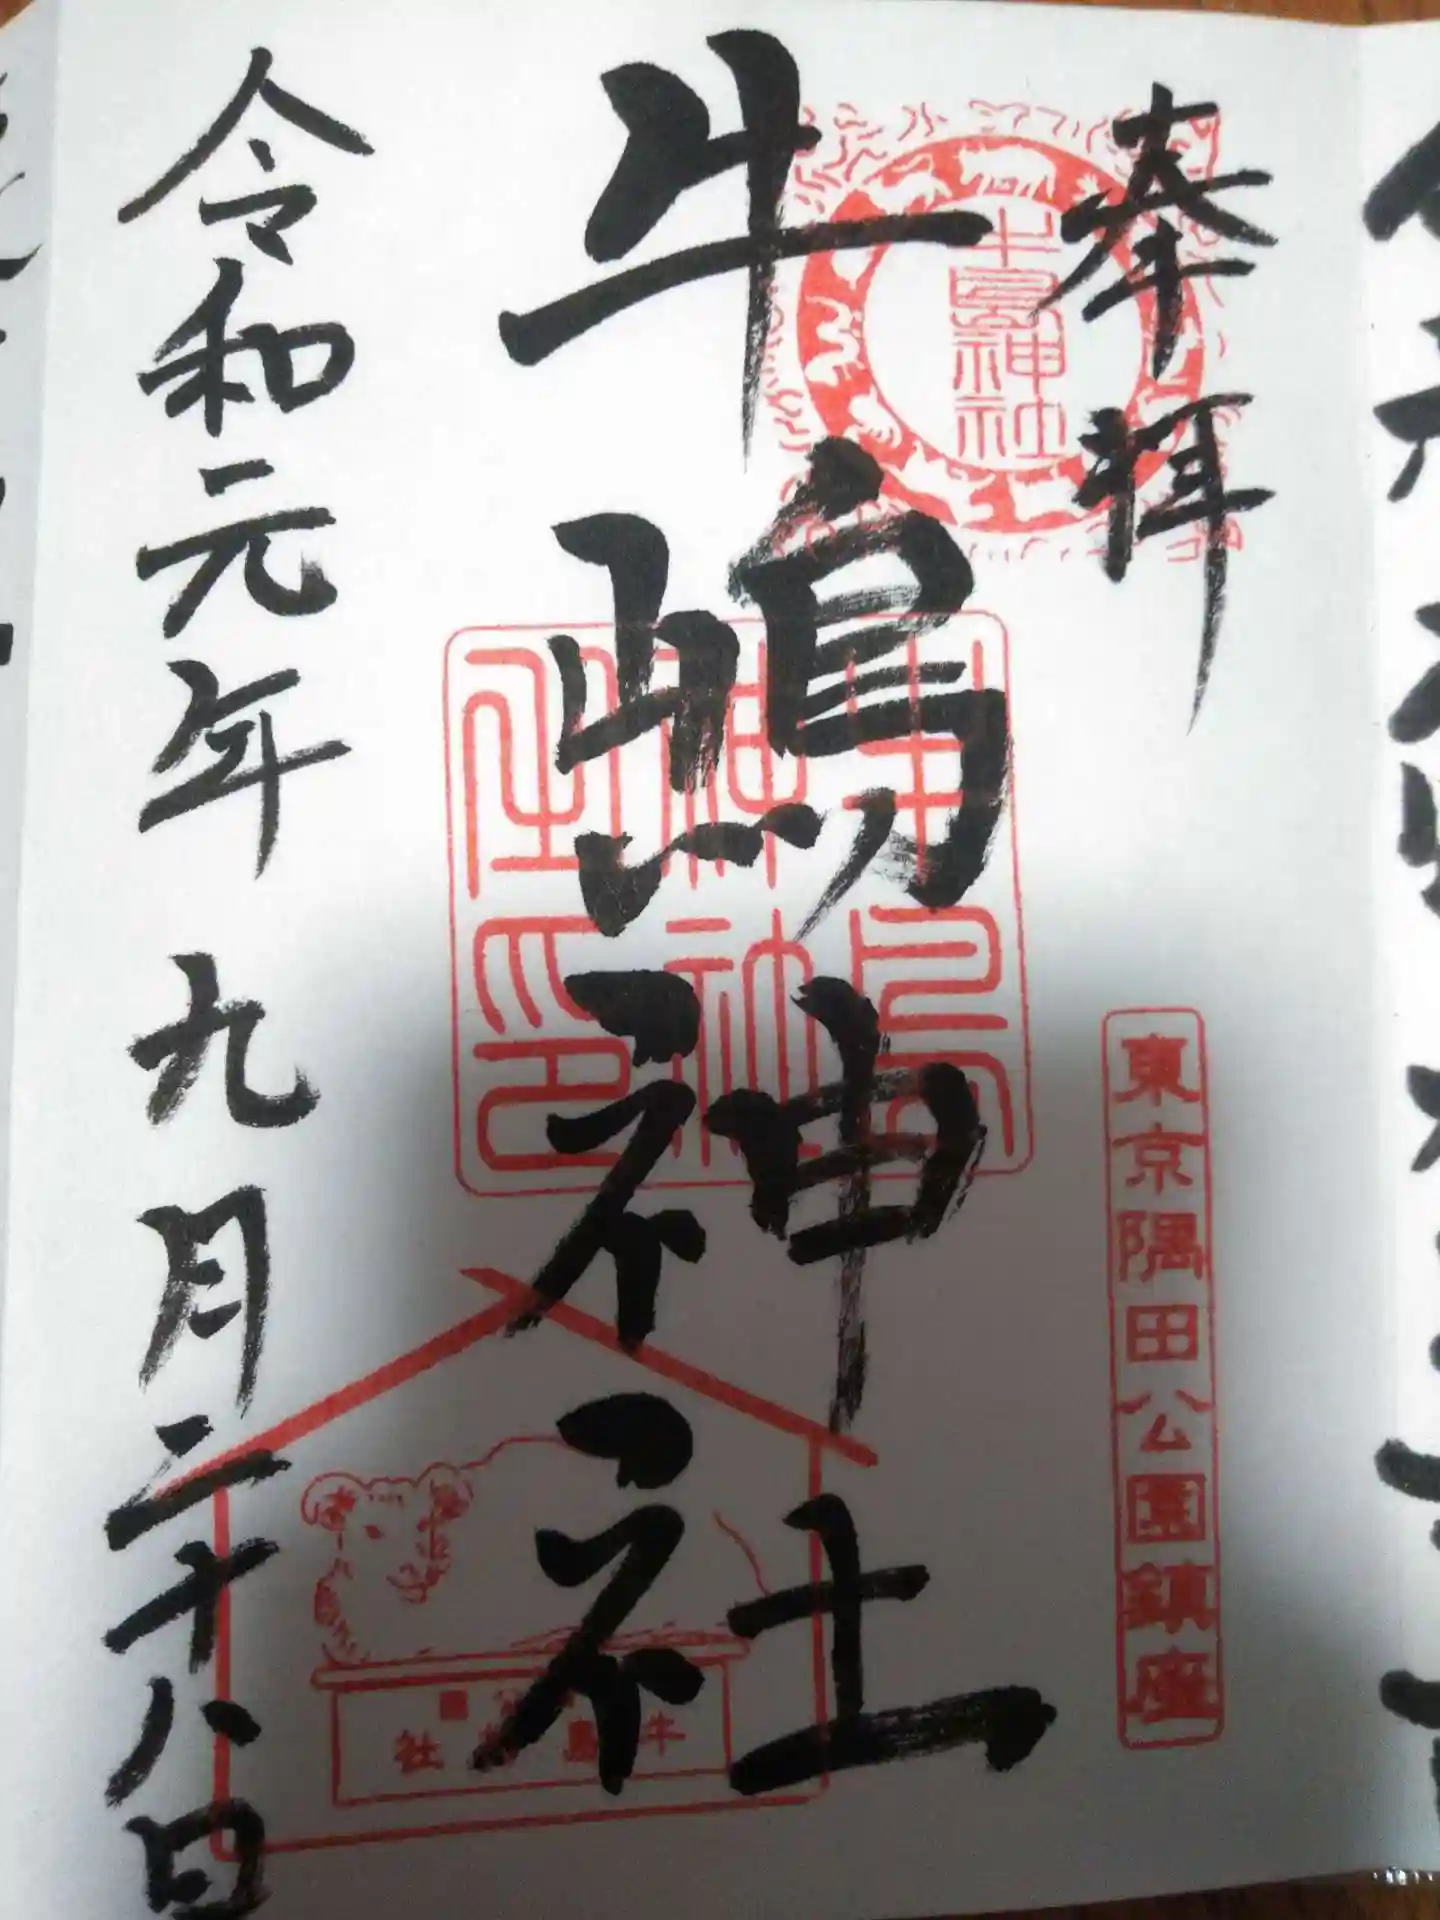 奉拝
牛嶋神社
令和元年九月二十八日
牛島神社
牛島神社之印
東京隅田公園鎮座
牛島神社